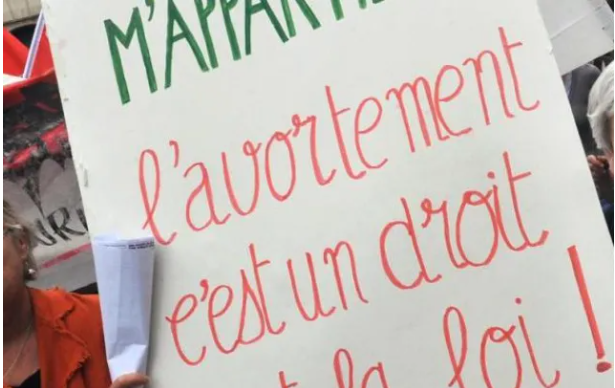 M'APPART
l'avortement
c'est un droit
t la loi !